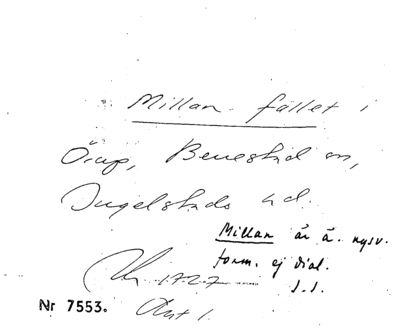 Millan. fallet i
Örup, Benestad sn,
Ingelstads hd.
Millan är ä. nysv.
form. ej dial.
1727
J. S.
Nr 7553.